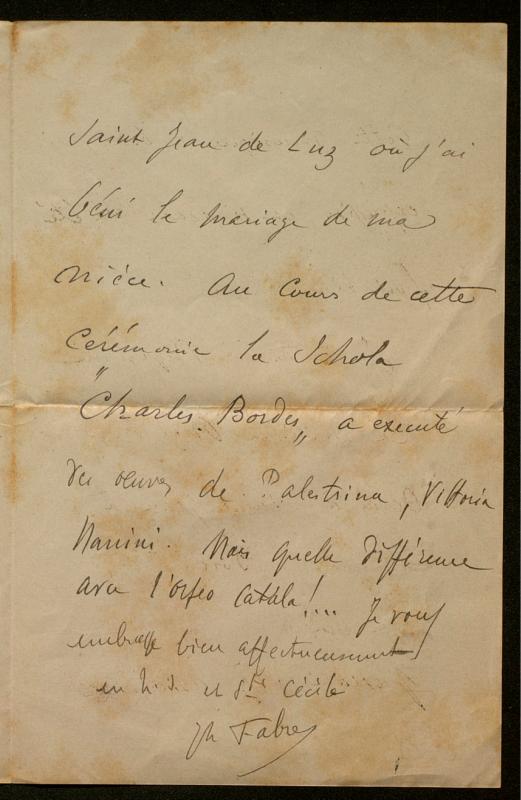 Saint Jean de Luz où j'ai
béni le mariage de ma
nièce. Au cours de cette
cérémonie la Schola
"Charles Bordes" a executé
des oeuvres de Palestrina, Vittoria
Nanini. Mais quelle différence
avec l'Orfeo Català!... Je vous
embrasse bien affectueusement
en N. S. et Ste Cécile
Fabre